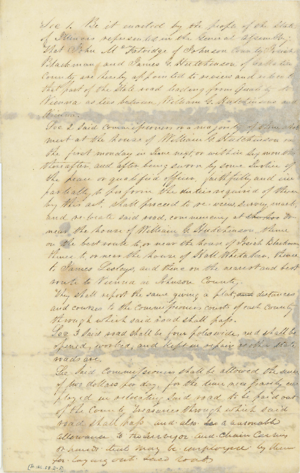 Sec 1 Be it enacted by the people of the State
of Illinois represented in the General Assembly
That John McFatridge of Johnson County
and James G. Hutchinson of Gallatin
County are hereby appointed to review and relocate
that part of the State road leading from
Vienna as lies between William G. Hutchinsons and
Sec 2 Said Commissioners or a majority of them shall
meet at the house of William G. Hutchinson on
the first monday in or within six months
thereafter and after being sworn by some Justice of
the peace or faithfully and im
partially to perform the duties required of them
by this act, shall proceed to view, survey, mark,
and relocate said road, commencing at
the house of William G. Hutchinson, thence
on the best route to, or near the house of
thence to, or near the house of thence
to James and thence on the nearest and best
route to Vienna in Johnson County.
They shall report the same giving a plat distances
and courses to the Commissioners court of each County
through which said road shall pass.
Sec 3 Said road shall be four poles wide, and shall be
opened, worked, and kept in repair as other state
roads are.
The Said Commissioners shall be allowed the sum
of two dollars per day, for the time necessarily em
ployed in relocating said road to be paid out
of the County Treasuries through which said
road shall pass and also a reasonable
allowance to the surveyor and chain Carriers
as may be employed by them
in laying out said road